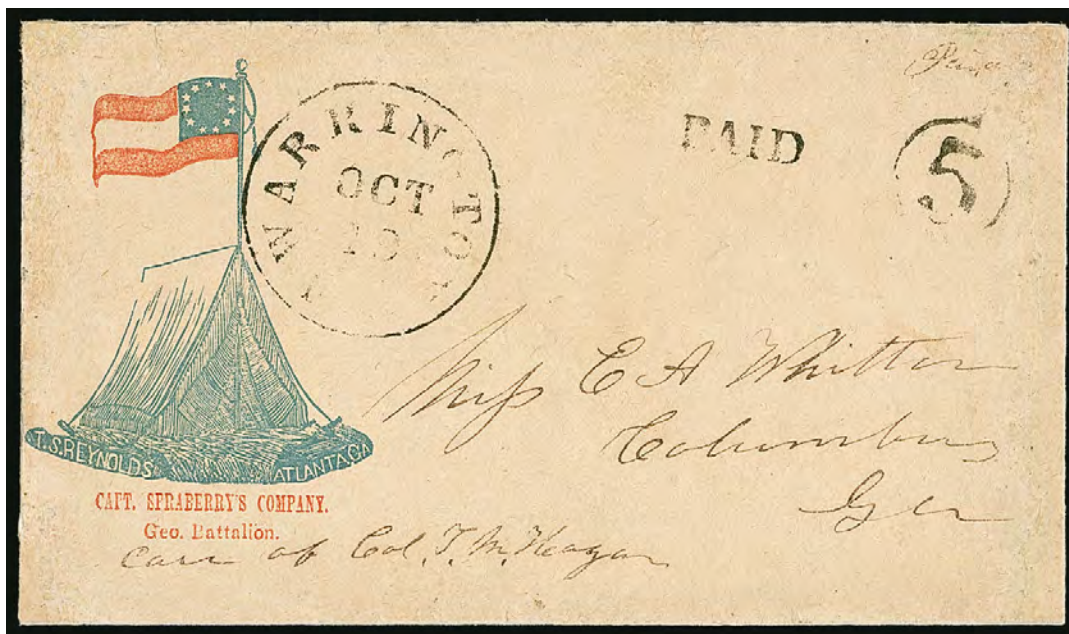 Paid
WARRINGTON
OCT
19
PAID
5
Miss E A Whitten
Columbus
Geo
T.S.REYNOLDS. ATLANTA.GA
CAPT. SPRABERRY'S COMPANY.
Geo. Battalion.
Care of Col. T. M.